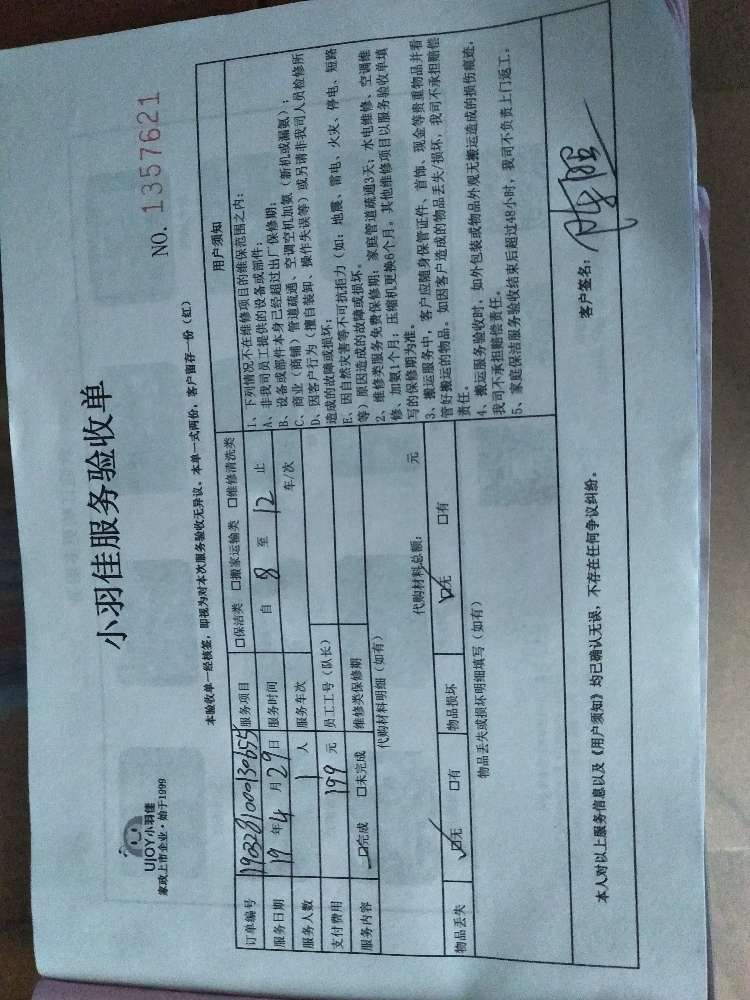 小羽佳服务验收单
UJOY小羽佳
家政上市企业·始于1999
NO. 1357621
本验收单一经核签，即视为对本次服务验收无异议。本单一式两份，客户留存一份（红）
订单编号 190328100030655 服务项目 □保洁类 □搬家运输类 □维修清洗类
服务日期 19 年 4 月 29 日 服务时间 自 8 至 12 止
服务人数 1 人 服务车次 车/次
支付费用 199 元 员工工号（队长）
服务内容 □完成 □未完成 维修类保修期
代购材料明细（如有）
代购材料总额： 元
物品丢失 □无 □有 物品损坏 □无 □有
物品丢失或损坏明细填写（如有）
用户须知
1、下列情况不在维修项目的维保范围之内：
A、非我司员工提供的设备或部件；
B、设备或部件本身已经超过出厂保修期；
C、商业（商铺）管道疏通、空调空机加氨（新机或漏氨）；
D、因客户行为（擅自装卸、操作失误等）或另请非我司人员检修所
造成的故障或损坏；
E、因自然灾害等不可抗拒力（如：地震、雷电、火灾、停电、短路
等）原因造成的故障或损坏。
2、维修类服务免费保修期：家庭管道疏通3天；水电维修、空调维
修、加氨1个月；压缩机更换6个月。其他维修项目以服务验收单填
写的保修期为准。
3、搬运服务中，客户应随身保管证件、首饰、现金等贵重物品并看
管好搬运的物品。如因客户造成的物品丢失/损坏，我司不承担赔偿
责任。
4、搬运服务验收时，如外包装或物品外观无搬运造成的损伤痕迹，
我司不承担赔偿责任。
5、家庭保洁服务验收结束后超过48小时，我司不负责上门返工。
本人对以上服务信息以及《用户须知》均已确认无误，不存在任何争议纠纷。
客户签名：